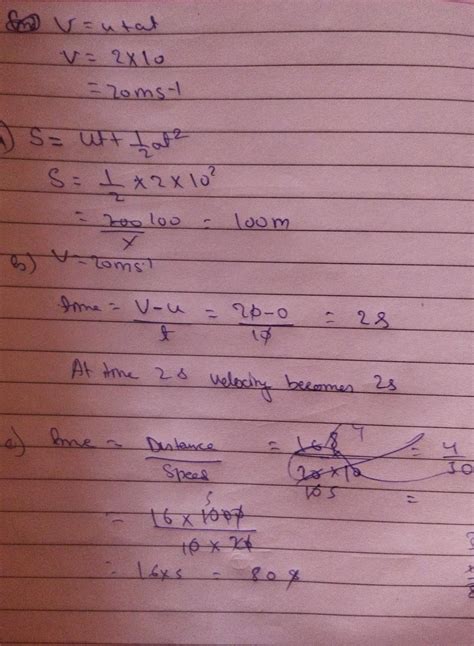 V = u + at
V = 2×10
= 20ms-1
a) S = ut + 1/2 at²
S = 1/2 × 2 × 10²
= 200/2 100 = 100m
b) V = 20ms-1
time = V-u/t = 20-0/10 = 2s
At time 2s velocity becomes 2s
c) time = Distance/Speed = 168 4/20×10 10s = 4/50
=
= 16 × 1000 5/10 × 20
= 16×5 = 80s